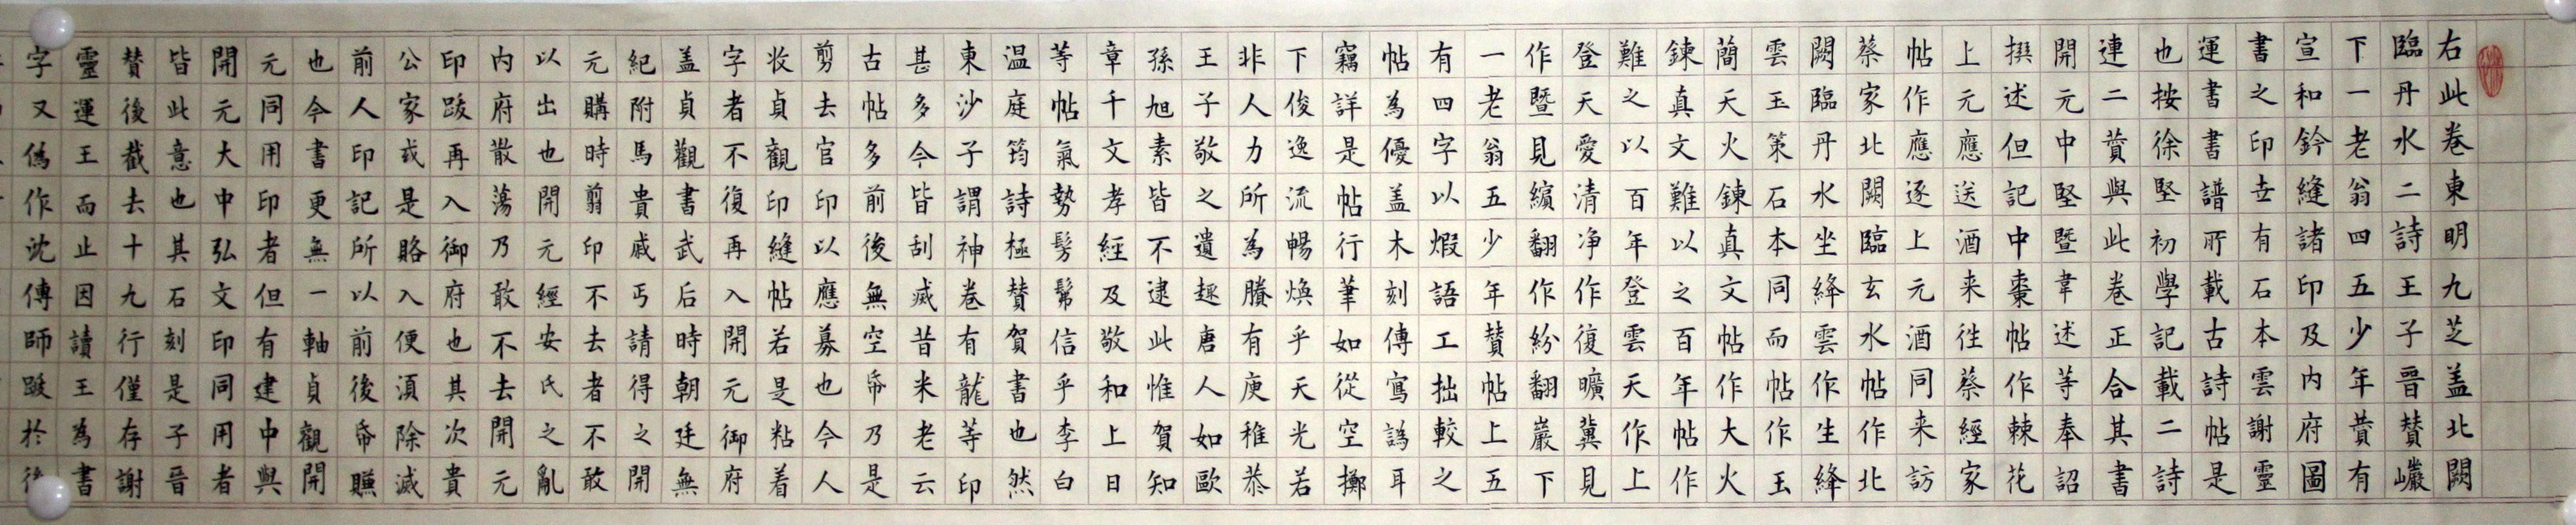 右此卷東明九芝盖北闕
臨丹水二詩王子晉贊巘
下一老翁四五少年賁有
宣和鈐縫諸印及内府圖
書之印世有石本雲謝靈
運書書譜所載古詩帖是
也按徐堅初學記載二詩
連二賁與此卷正合其書
開元中堅暨韋述等奉詔
撰述但記中棗帖作棘花
上元應送酒来徃蔡經家
帖作應逐上元酒同来訪
蔡家北闕臨玄水帖作北
闕臨丹水坐絳雲作生絳
雲玉策石本同而帖作玉
簡天火鍊真文帖作大火
鍊真文難以之百年作作
難之以百年登雲天帖上
登天愛清净作復曠冀見
作暨見繽翻作紛翻巖下
一老翁五少年贊帖上五
有四字以煆語工拙較之
帖為優盖木刻傳寫譌耳
竊詳是帖行筆如從空擲
下俊逸流暢煥乎天光若
非人力所為賸有庾稚恭
王子敬之遺趣唐人如歐
孫旭素皆不逮此惟賀知
章千文孝經及敬和上日
等帖氣勢髣髴信乎李白
温庭筠詩極贊賀書也然
東沙子謂神卷有龍等印
甚多今皆刮滅昔米老云
古帖多前後無空帋乃是
剪去官印以應募也今人
收貞觀印縫帖若是粘着
字者不復再入開元御府
盖貞觀書武后時朝廷無
紀附馬貴戚丐請得之開
元購時剪印不去者不敢
以出也開元經安氏之亂
内府散蕩乃敢不去開元
印跋再入御府也其次貴
公家或是賂入便湏除滅
前人印記所以前後帋賺
也今書更無一軸貞觀開
元同用印者但有建中與
開元大中弘文印同用者
皆此意也其石刻是子晉
贊後截去十九行僅存謝
靈運王而止因讀王為書
字又偽作沈傳師跋於